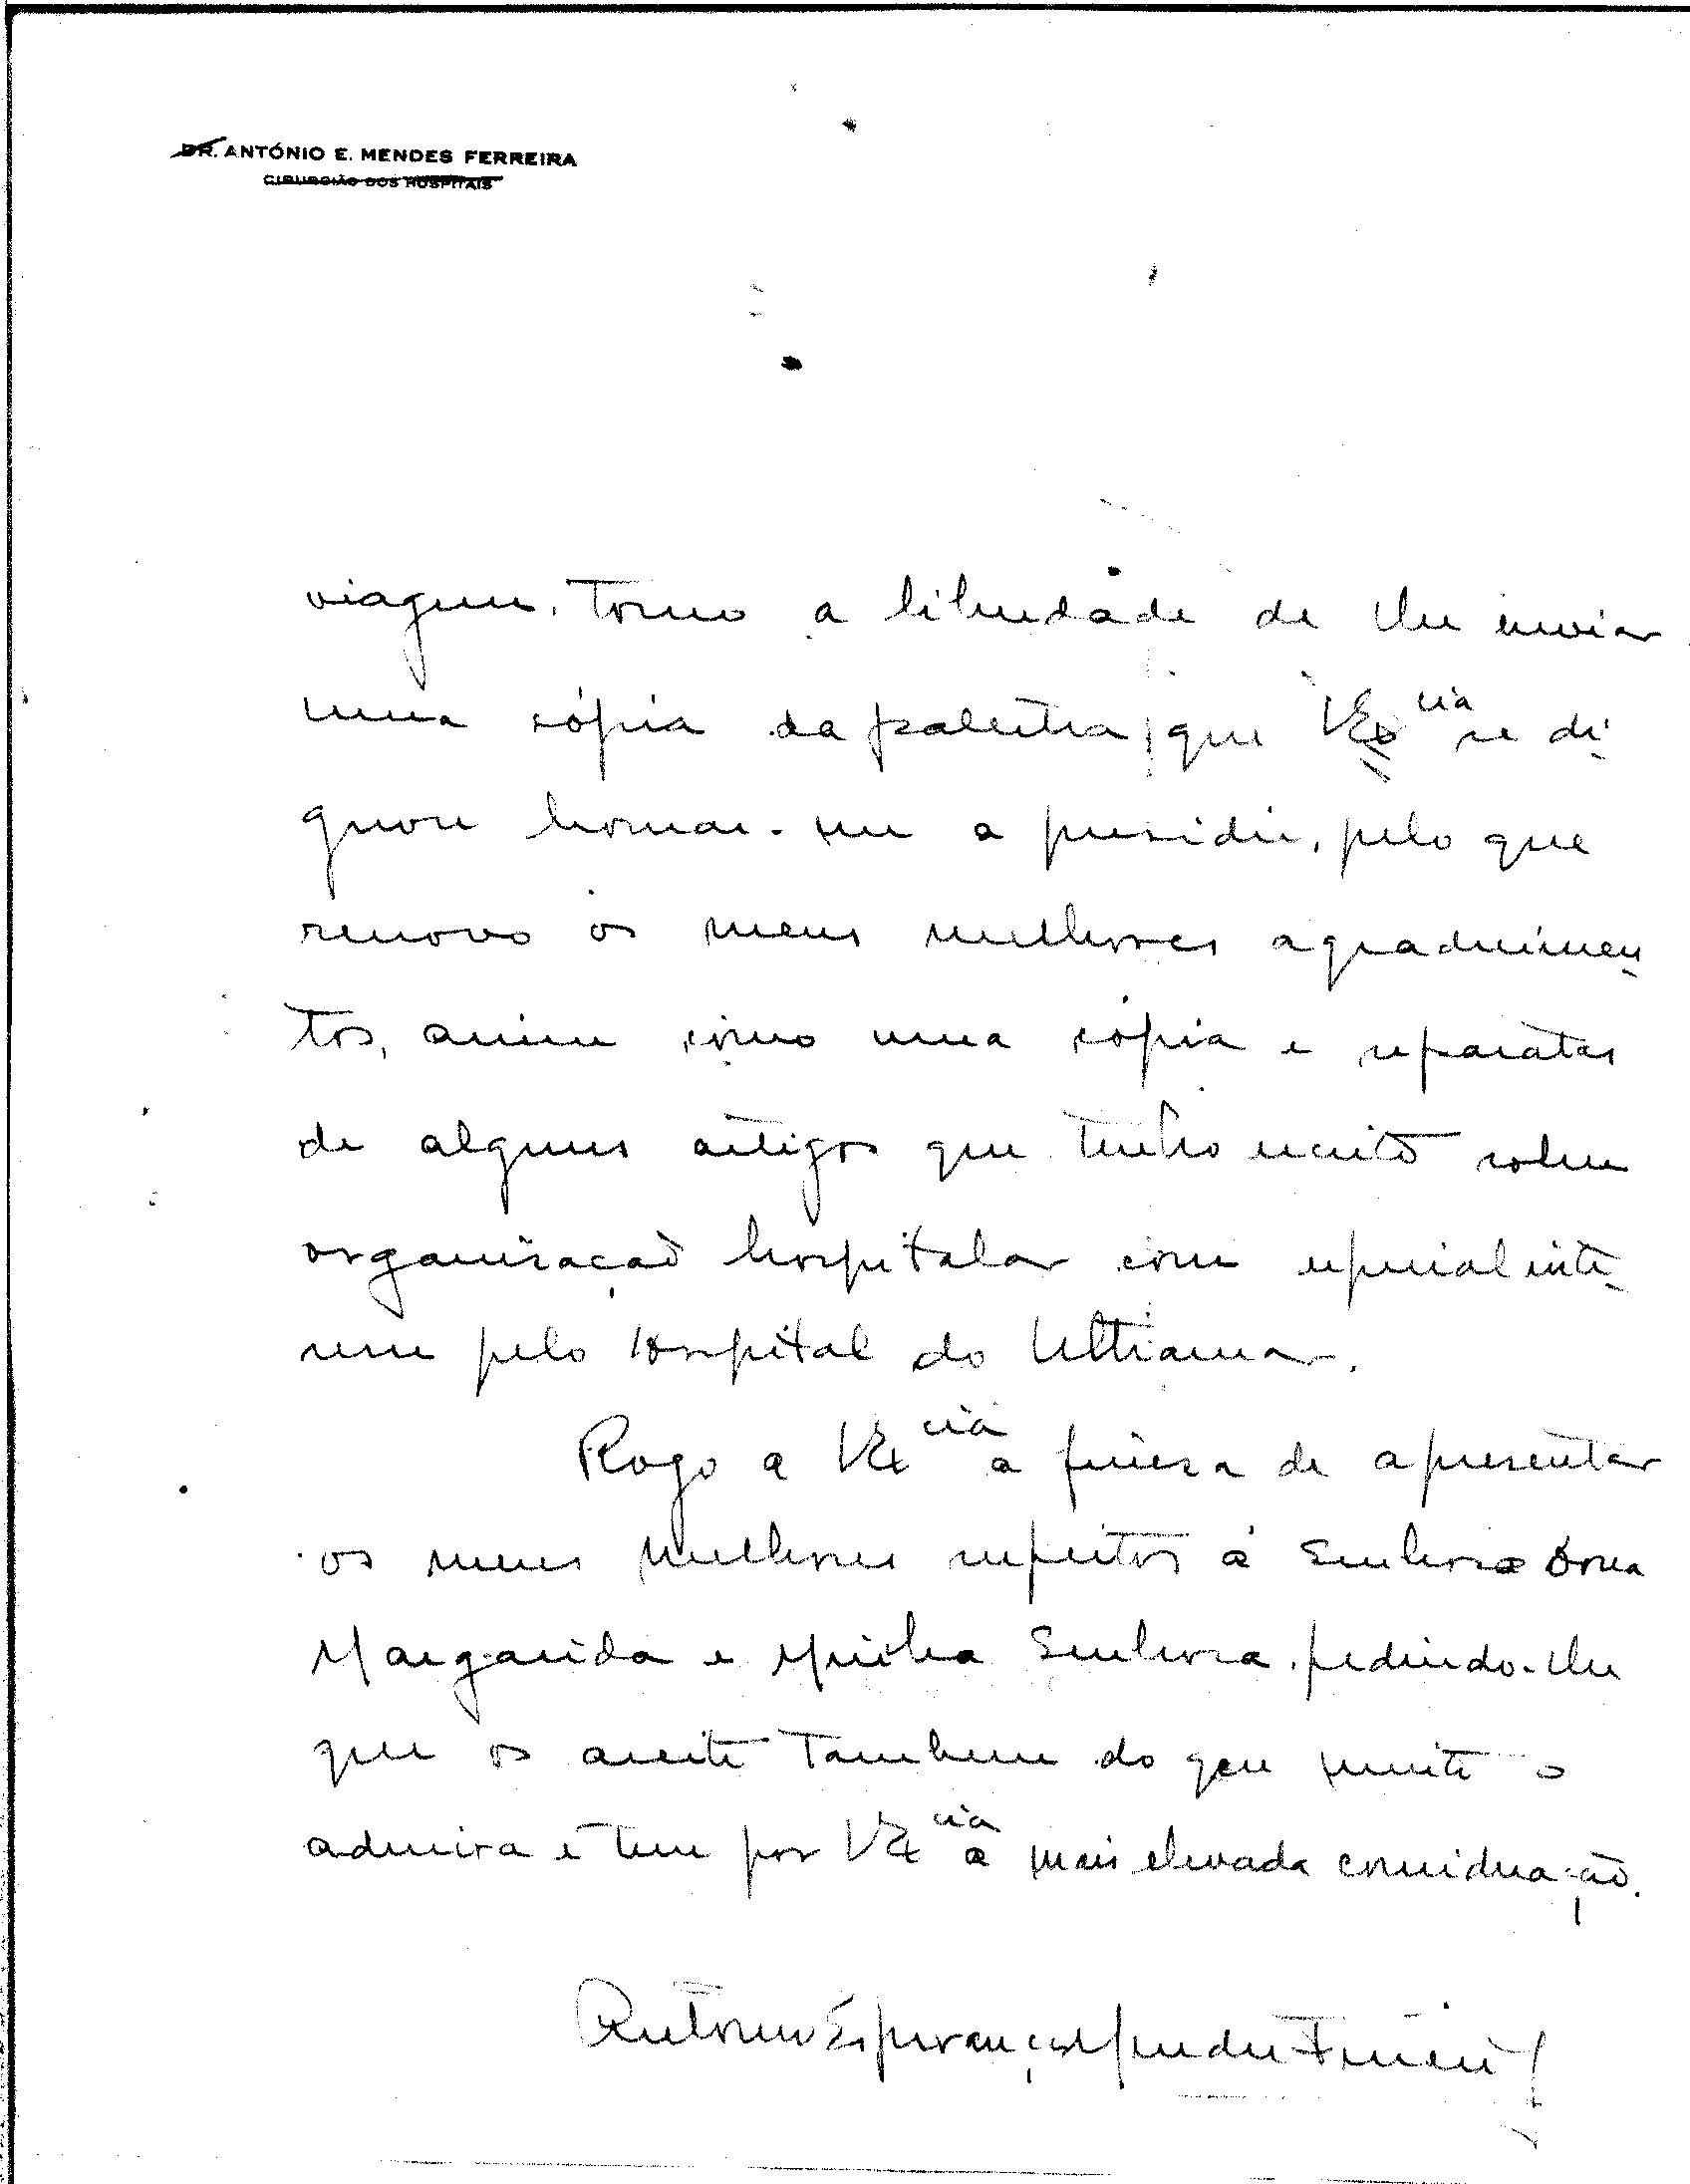 DR. ANTÓNIO E. MENDES FERREIRA
CIRURGIÃO DOS HOSPITAIS
viagem. Tomo a liberdade de lhe enviar
uma cópia da palestra que V Ex cia se di-
gnou honrar-me a presidir, pelo que
renovo os meus melhores agradecimen-
tos, assim como uma cópia e separatas
de alguns artigos que tenho escrito sobre
organização hospitalar com especial inte-
resse pelo Hospital do Ultramar.
Rogo a V Ex cia a fineza de apresentar
os meus melhores respeitos à Senhora Dona
Margarida e Minha Senhora, pedindo-lhe
que os aceite tambem do que muito o
admira e tem por V Ex cia a mais elevada consideração.
António Esperança Mendes Ferreira